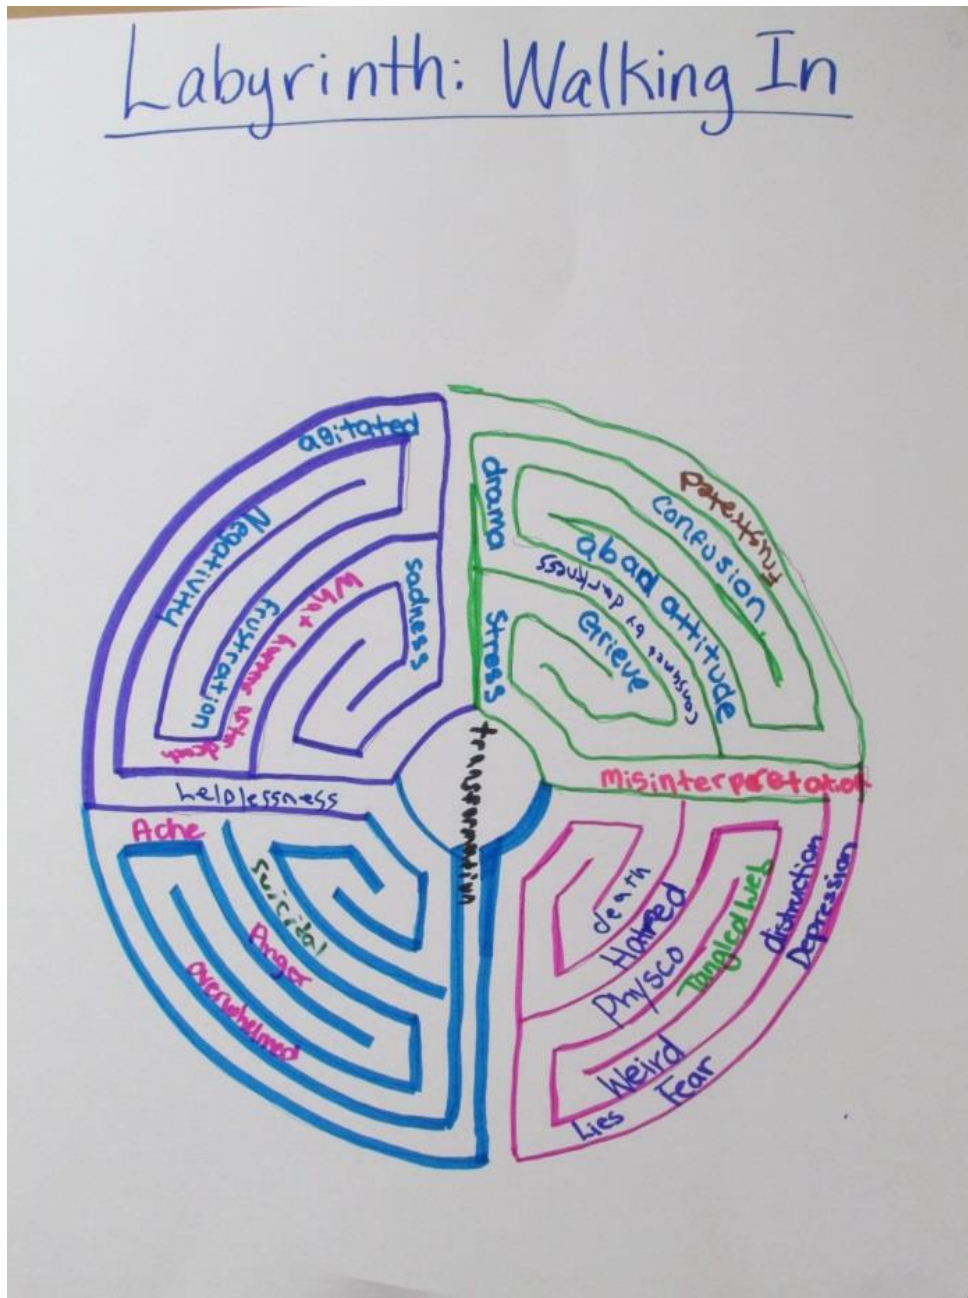 Labyrinth: Walking In
agitated
Negativity
frustration
What after death
sadness
helplessness
drama
Frustrated
confusion
a bad attitude
consumed by darkness
Grieve
Stress
transformation
misinterpretation
Ache
suicidal
Anger
overwhelmed
death
Hatred
Physco
Tangled Web
distruction
Depression
Weird
Lies Fear